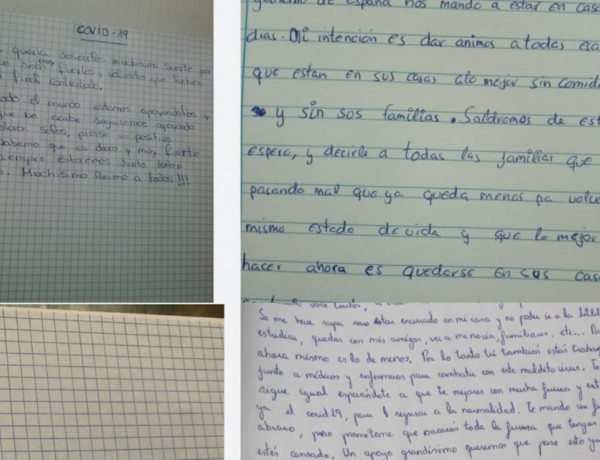 COVID-19
quería desearte muchísimo suerte
fuertes y valiente que luches
contrólate.
todo el mundo estamos apoyandote y
que no acabe seguiremos apoyando
piensa en positivo,
Sabemos que es duro y muy fuerte
siempre estaremos juntos todos
Muchisimo Animo a todos!!!
gobierno de españa nos mando a estar en casa
dias. Mi intención es dar animos a todas esa
que estan en sus casas alo mejor sin comida
y sin sus familias. Saldremos de est
espero, y decirle a todas las familias que
pasando mal que ya queda menos pa volve
mismo estado de vida y que lo mejor
hacer ahora es quedarse en sus casa
Se me hace super raro estar encerrado en mi casa y no poder ir a la bibl
estudiar, quedar con mis amigos, ver a mi novia, familiares, etc... Pe
ahora mismo es lo de menos. Por lo tanto tú también estás trabaj
junto a médicos y enfermeros para combatir con este maldito virus. Te
sigue igual esperándote a que te mejores con mucha fuerza y
ya el covid19, para regresar a la normalidad. Te mando un fu
abrazo, pero prometeme que sacarás toda la fuerza que tengas
estés cansado. Un apoyo grandísimo queremos que pase esto ya